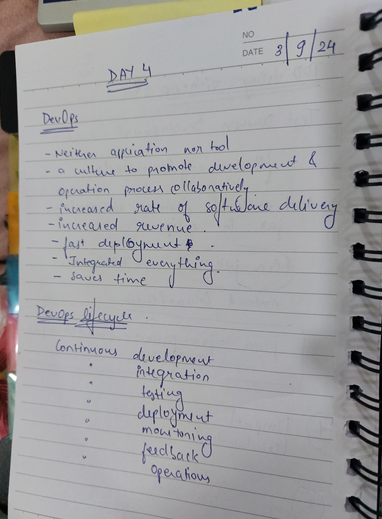 NO
DATE 3/9/24
DAY 4
DevOps
- Neither application nor tool
- a culture to promote development &
operation process collaboratively
- increased rate of software delivery
- increased revenue.
- fast deployment.
- Integrated everything.
- saves time
DevOps lifecycle.
Continuous development
" integration
" testing
" deployment
" monitoring
" feedback
operations